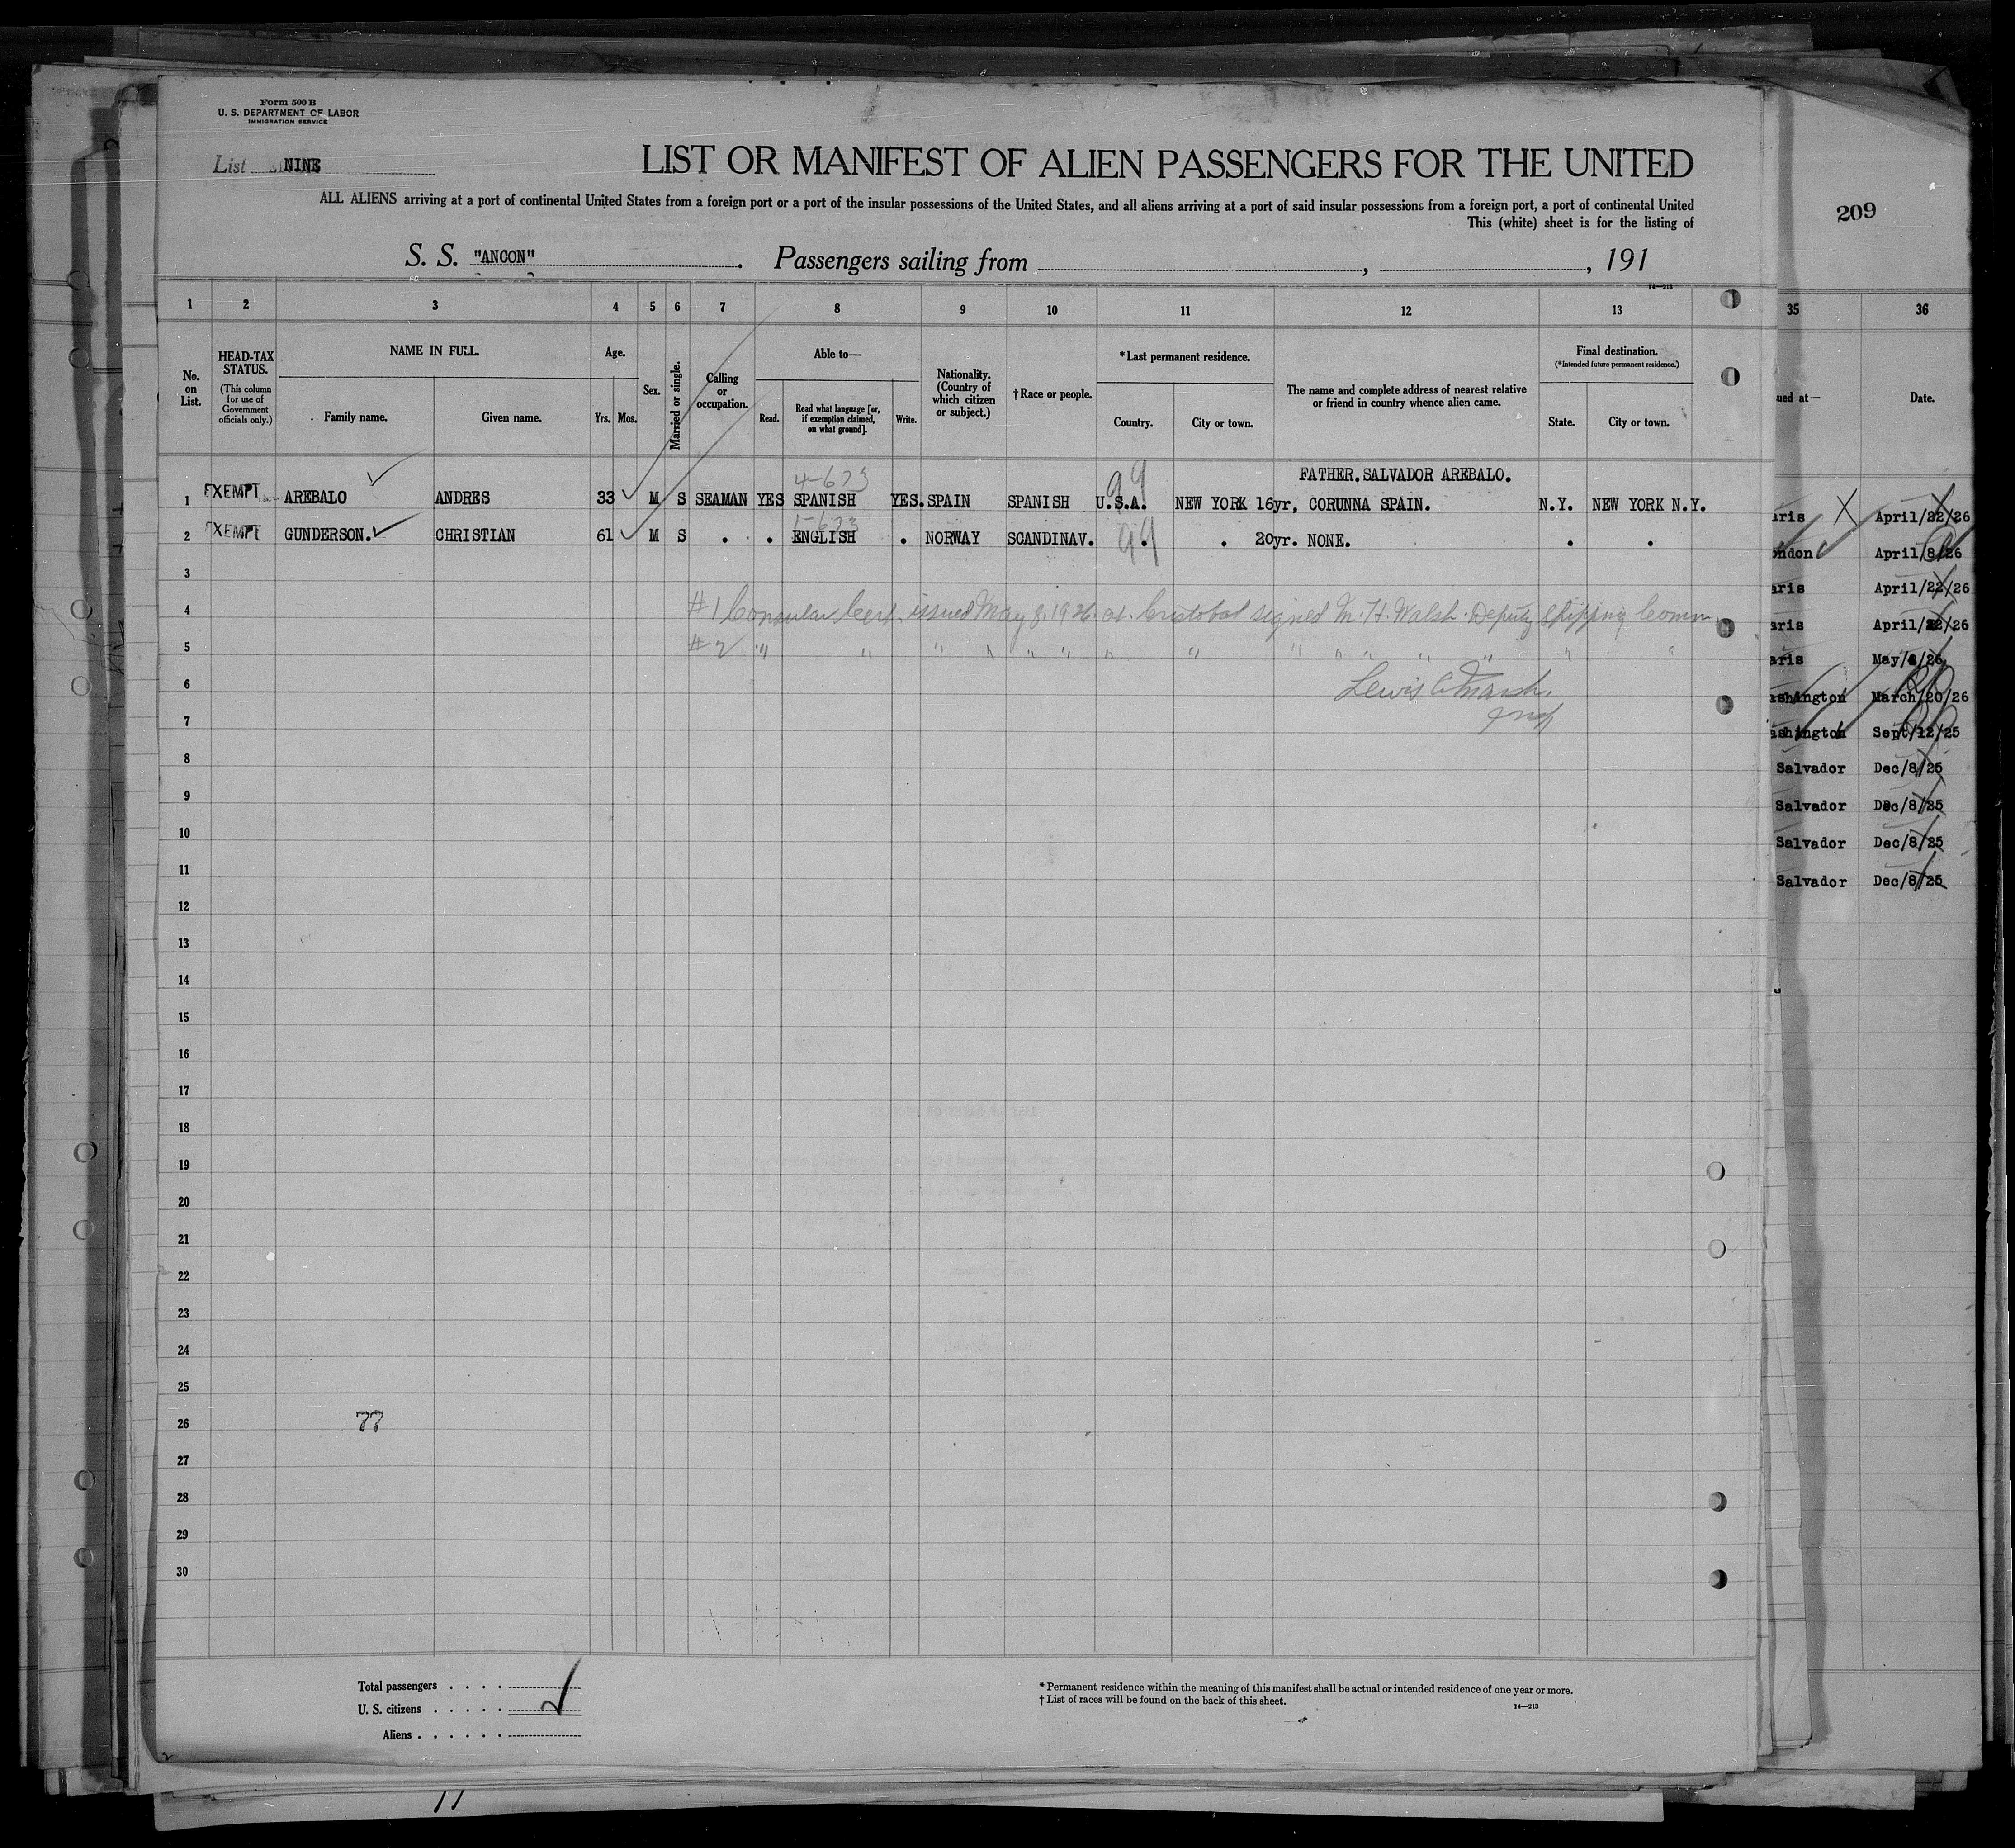 Form 500 B
U. S. DEPARTMENT OF LABOR
IMMIGRATION SERVICE
List NINE
LIST OR MANIFEST OF ALIEN PASSENGERS FOR THE UNITED
ALL ALIENS arriving at a port of continental United States from a foreign port or a port of the insular possessions of the United States, and all aliens arriving at a port of said insular possessions from a foreign port, a port of continental United
This (white) sheet is for the listing of
209
S. S. "ANCON" . Passengers sailing from , , 191
14—213
1 2 3 4 5 6 7 8 9 10 11 12 13 35 36
No. on List.
HEAD-TAX STATUS.
(This column for use of Government officials only.)
NAME IN FULL.
Family name. Given name.
Age.
Yrs. Mos.
Sex.
Married or single.
Calling or occupation.
Able to—
Read. Read what language [or, if exemption claimed, on what ground]. Write.
Nationality. (Country of which citizen or subject.)
†Race or people.
*Last permanent residence.
Country. City or town.
The name and complete address of nearest relative or friend in country whence alien came.
Final destination.
(*Intended future permanent residence.)
State. City or town.
ued at— Date.
4-673 99 FATHER.SALVADOR AREBALO.
1 EXEMPT AREBALO ANDRES 33 M S SEAMAN YES SPANISH YES. SPAIN SPANISH U.S.A. NEW YORK 16yr, CORUNNA SPAIN. N.Y. NEW YORK N.Y.
1-673 99
2 EXEMPT GUNDERSON. CHRISTIAN 61 M S . . ENGLISH . NORWAY SCANDINAV. . . 20yr. NONE. . .
3
4 #1 Consular Cert. issued May 8. 1926. at. Cristobal signed M. H. Walsh. Deputy Shipping Comm
5 #2 " " " " " " " " " " " " " " "
6 Lewis C Marsh.
7 Insp
8
9
10
11
12
13
14
15
16
17
18
19
20
21
22
23
24
25
26 77
27
28
29
30
aris April/22/26
ondon April/8/26
aris April/22/26
aris April/22/26
aris May/ /26
ashington March/20/26
ashington Sept/12/25
Salvador Dec/8/25
Salvador Dec/8/25
Salvador Dec/8/25
Salvador Dec/8/25
Total passengers . . . .
U. S. citizens . . . . .
Aliens . . . . . .
* Permanent residence within the meaning of this manifest shall be actual or intended residence of one year or more.
† List of races will be found on the back of this sheet.
14—213